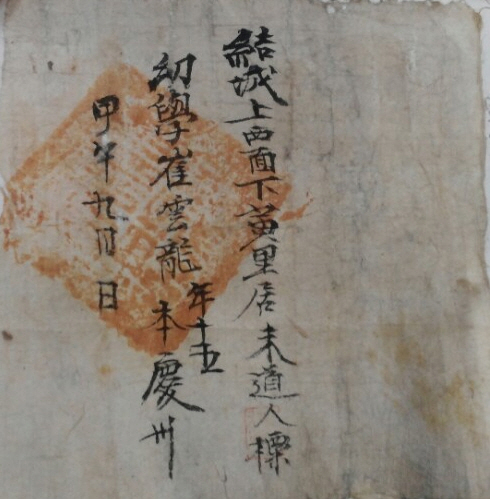 結城上西面下黃里居未道人標
幼學崔雲龍 年十五 本慶州
甲午九月 日